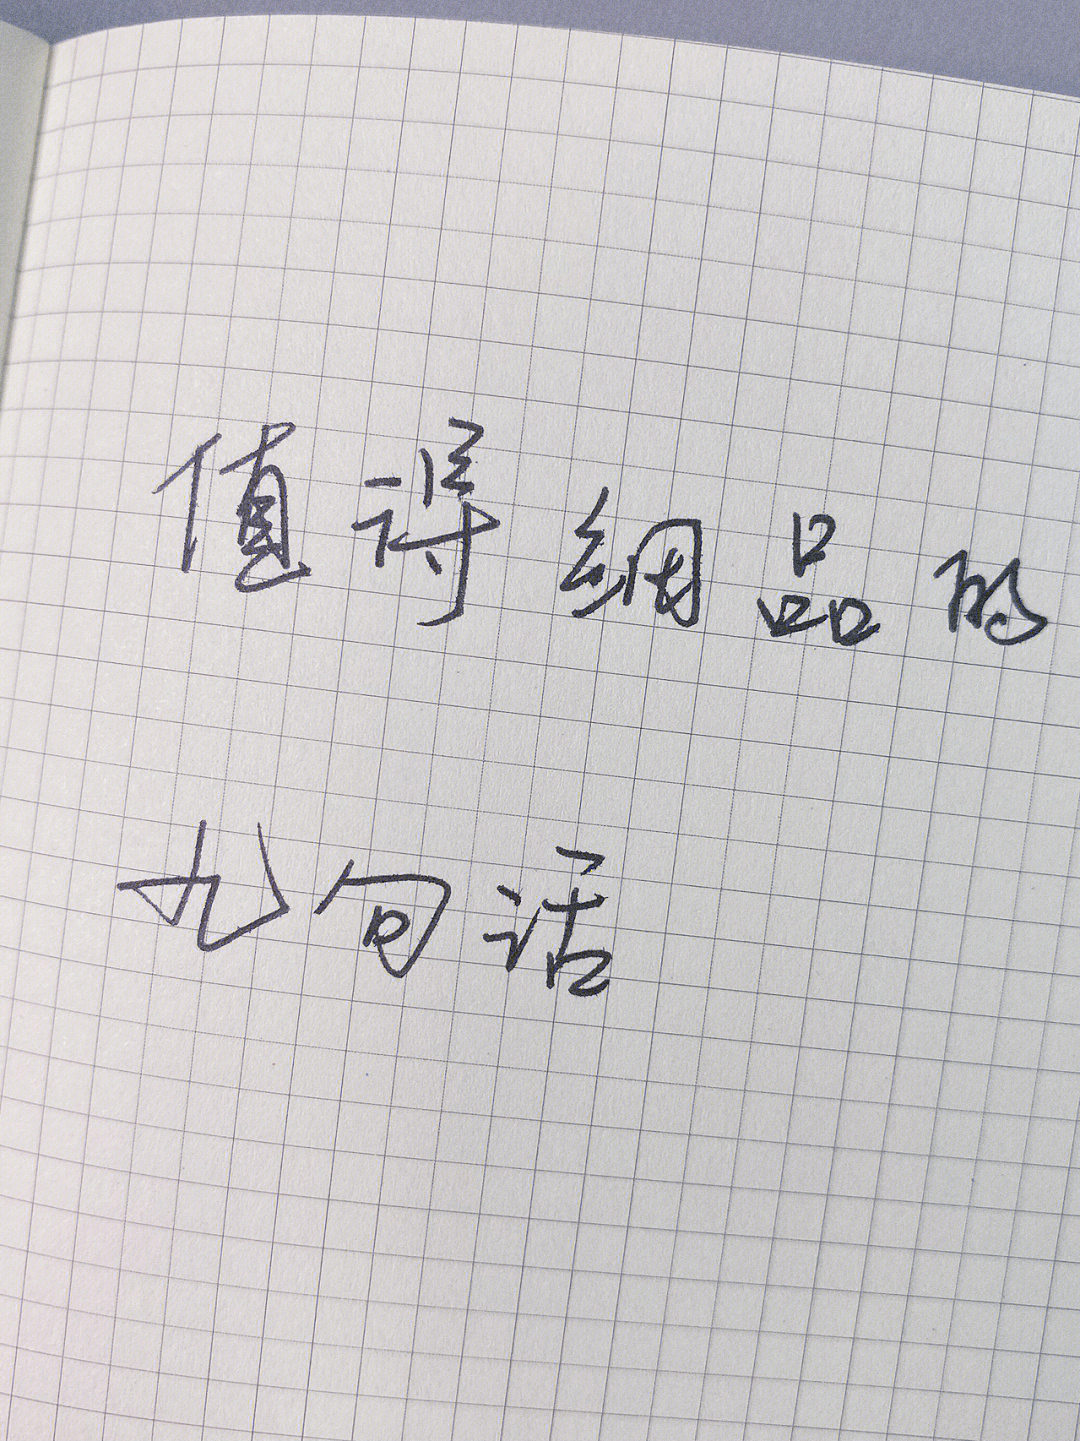 值得细品的
九句话